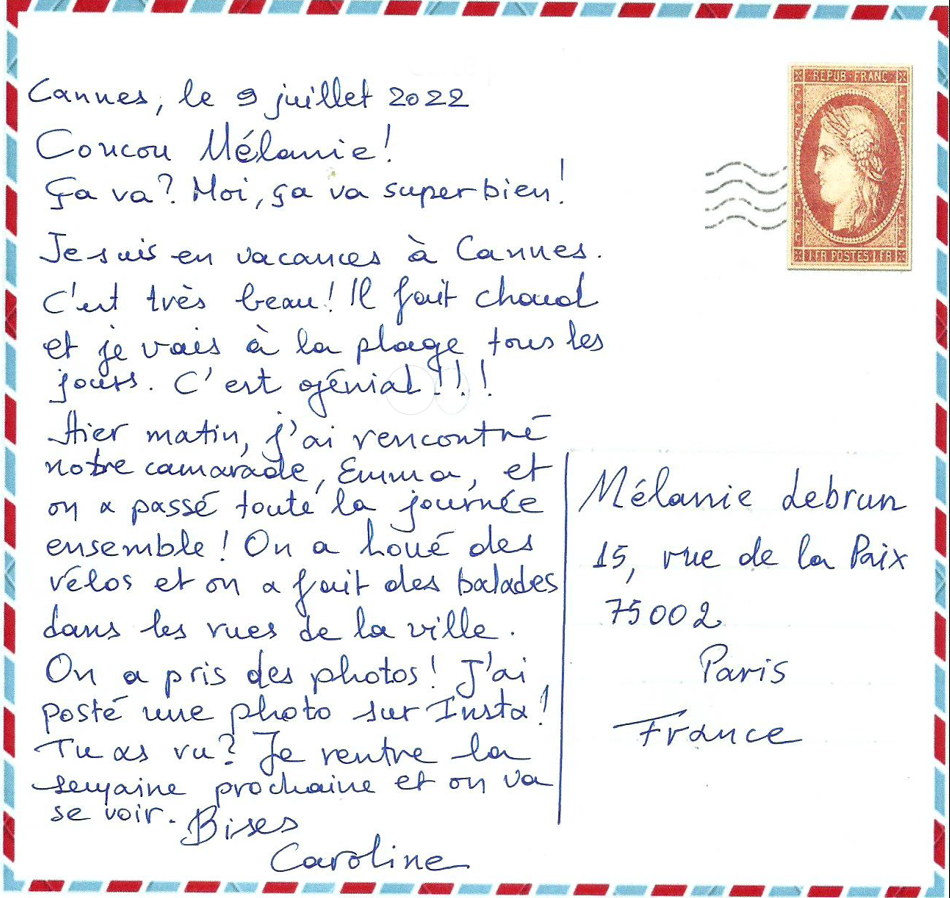 Cannes, le 9 juillet 2022
Coucou Mélanie!
Ça va? Moi, ça va super bien!
Je suis en vacances à Cannes.
C'est très beau! Il fait chaud
et je vais à la plage tous les
jours. C'est génial!!!
Hier matin, j'ai rencontré
notre camarade, Emma, et
on a passé toute la journée
ensemble! On a loué des
vélos et on a fait des balades
dans les rues de la ville.
On a pris des photos! J'ai
posté une photo sur Insta!
Tu as vu? Je rentre la
semaine prochaine et on va
se voir. Bises
Caroline
REPUB FRANC
1.FR POSTES 1.FR
Mélanie Lebrun
15, rue de la Paix
75002
Paris
France